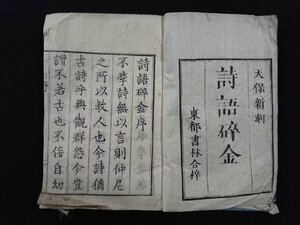 天保新刻
詩語碎金
東都書林合梓
詩語碎金序
不學詩無以言則仲尼
之所以教人也今詩猶
古詩乎興觀群怨今豈
謂不若古也不佞自幼